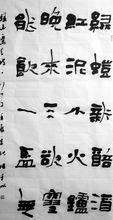 綠螘新醅酒
紅泥小火鑪
晚來天欲雪
能飲一盃無